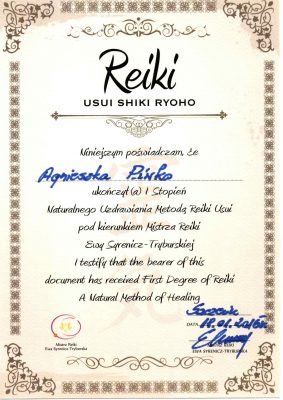 Reiki
USUI SHIKI RYOHO
Niniejszym poświadczam, że
Agnieszka
ukończył(a) I Stopień
Naturalnego Uzdrawiania Metodą Reiki Usui
pod kierunkiem Mistrza Reiki
Ewy Syrenicz-Tryburskiej
I testify that the bearer of this
document has received First Degree of Reiki
A Natural Method of Healing
DATA
Mistrz Reiki
Ewa Syrenicz Tryburska
EWA SYRENICZ-TRYBURSKA